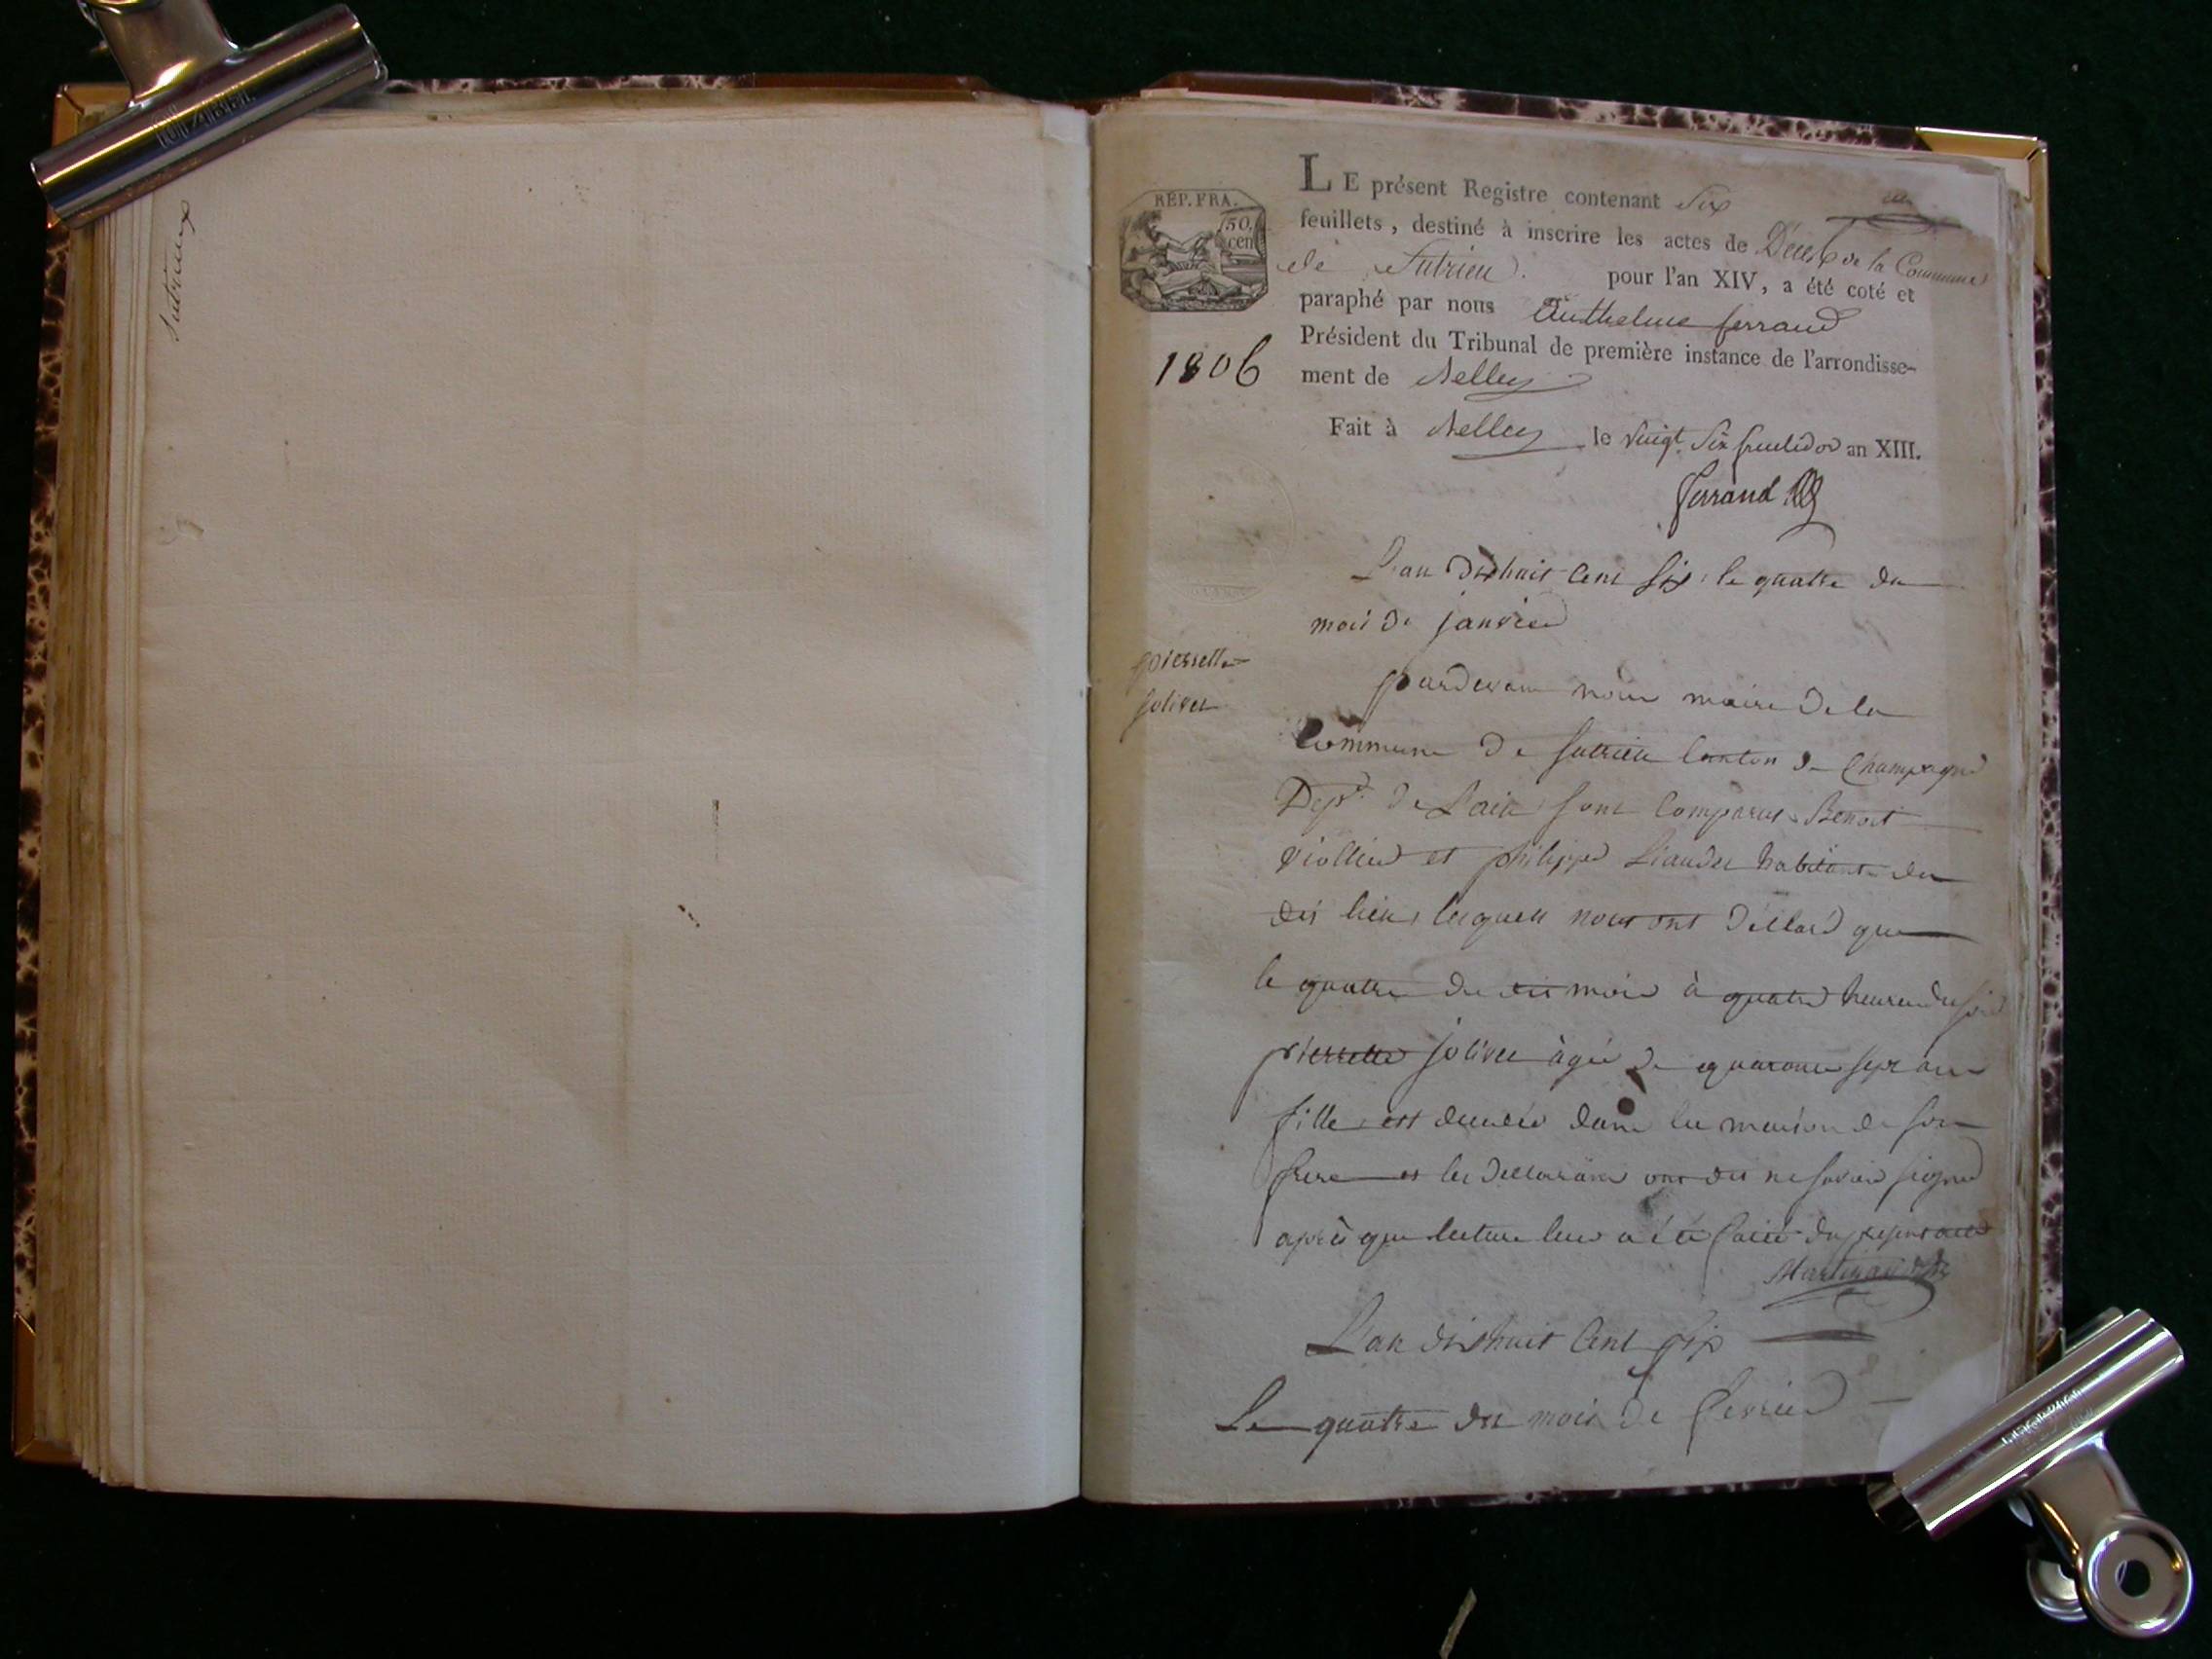 Sutrieux
REP. FRA.
50.
cen
1806
LE présent Registre contenant Six
feuillets, destiné à inscrire les actes de Décès de la Commune
de Sutrieu. pour l'an XIV, a été coté et
paraphé par nous Anthelme ferrand
Président du Tribunal de première instance de l'arrondisse-
ment de Belley
Fait à Belley le vingt Six fructidor an XIII.
ferrand
L'an dixhuit Cent Six, le quatre du
mois de janvier
pierrette
jolivet
pardevant nous maire de la
Commune de Sutrieu Canton de Champagne
Dept. de L'ain sont Comparus Benoit
viollier et philippe Liaudet habitants du
dit lieu, lesquels nous ont Déclaré que
le quatre du dit mois à quatre heures du soir
pierrette jolivet âgée de quarante sept ans
fille, est décédée dans la maison de son
frere et les déclarans ont dit ne savoir signer
après que lecture leur a été faite du présent acte
L'an dixhuit Cent Six
Le quatre du mois de fevrier